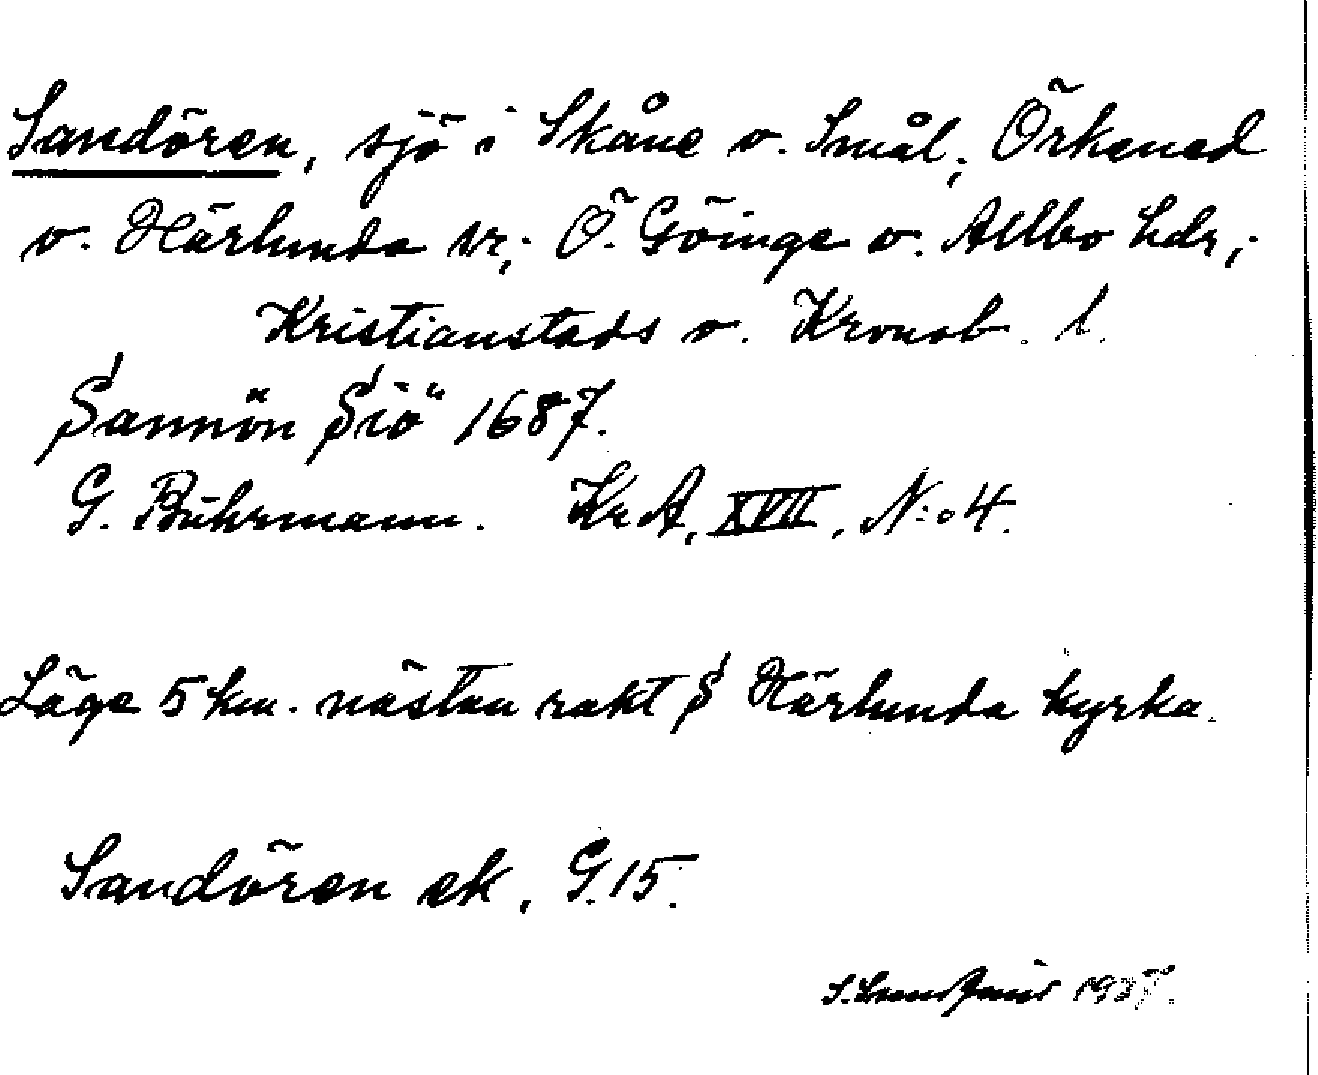 Sandören, sjö i Skåne o. Smål; Örkened
o. Härlunda sr; Ö. Göinge o. Allbo hdr;
Kristianstads o. Kronob. l.
Sannön Siö 1687.
G. Buhrmann. KrA, XVII, N:o 4.
Läge 5 km. nästan rakt S Härlunda kyrka.
Sandören ek, G.15.